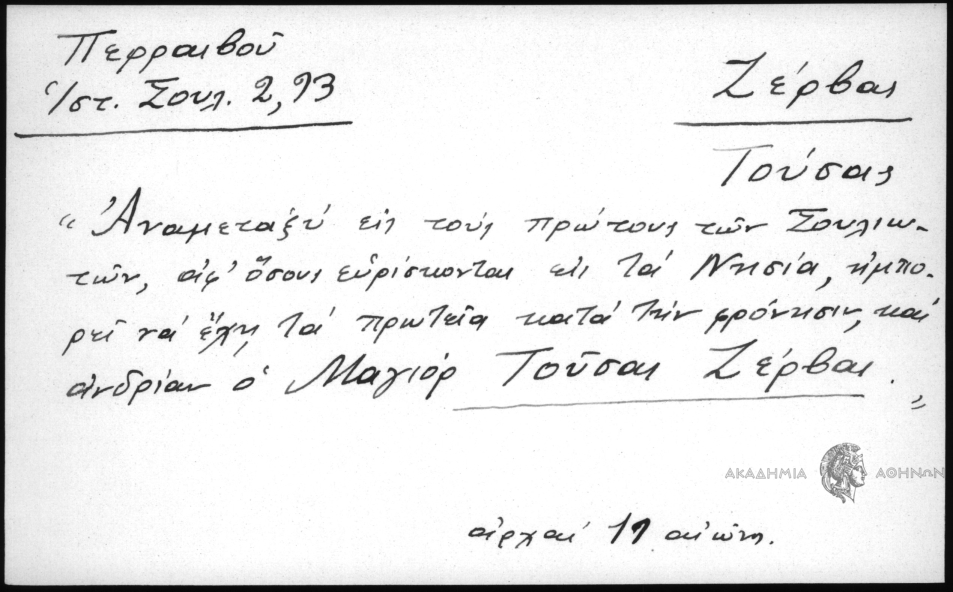 Περραιβοῦ
Ἱστ. Σουλ. 2, 93
Ζέρβας
Τούσας
"Ἀναμεταξύ εἰς τούς πρώτους τῶν Σουλιω-
τῶν, ἀφ' ὅσους εὑρίσκονται εἰς τά Νησία, ἠμπο-
ρεῖ νά ἔχῃ τά πρωτεῖα κατά τήν φρόνησιν, καί
ἀνδρίαν ὁ Μαγιόρ Τοῦσας Ζέρβας."
ΑΚΑΔΗΜΙΑ ΑΘΗΝΩΝ
ἀρχαί 19 αἰών.